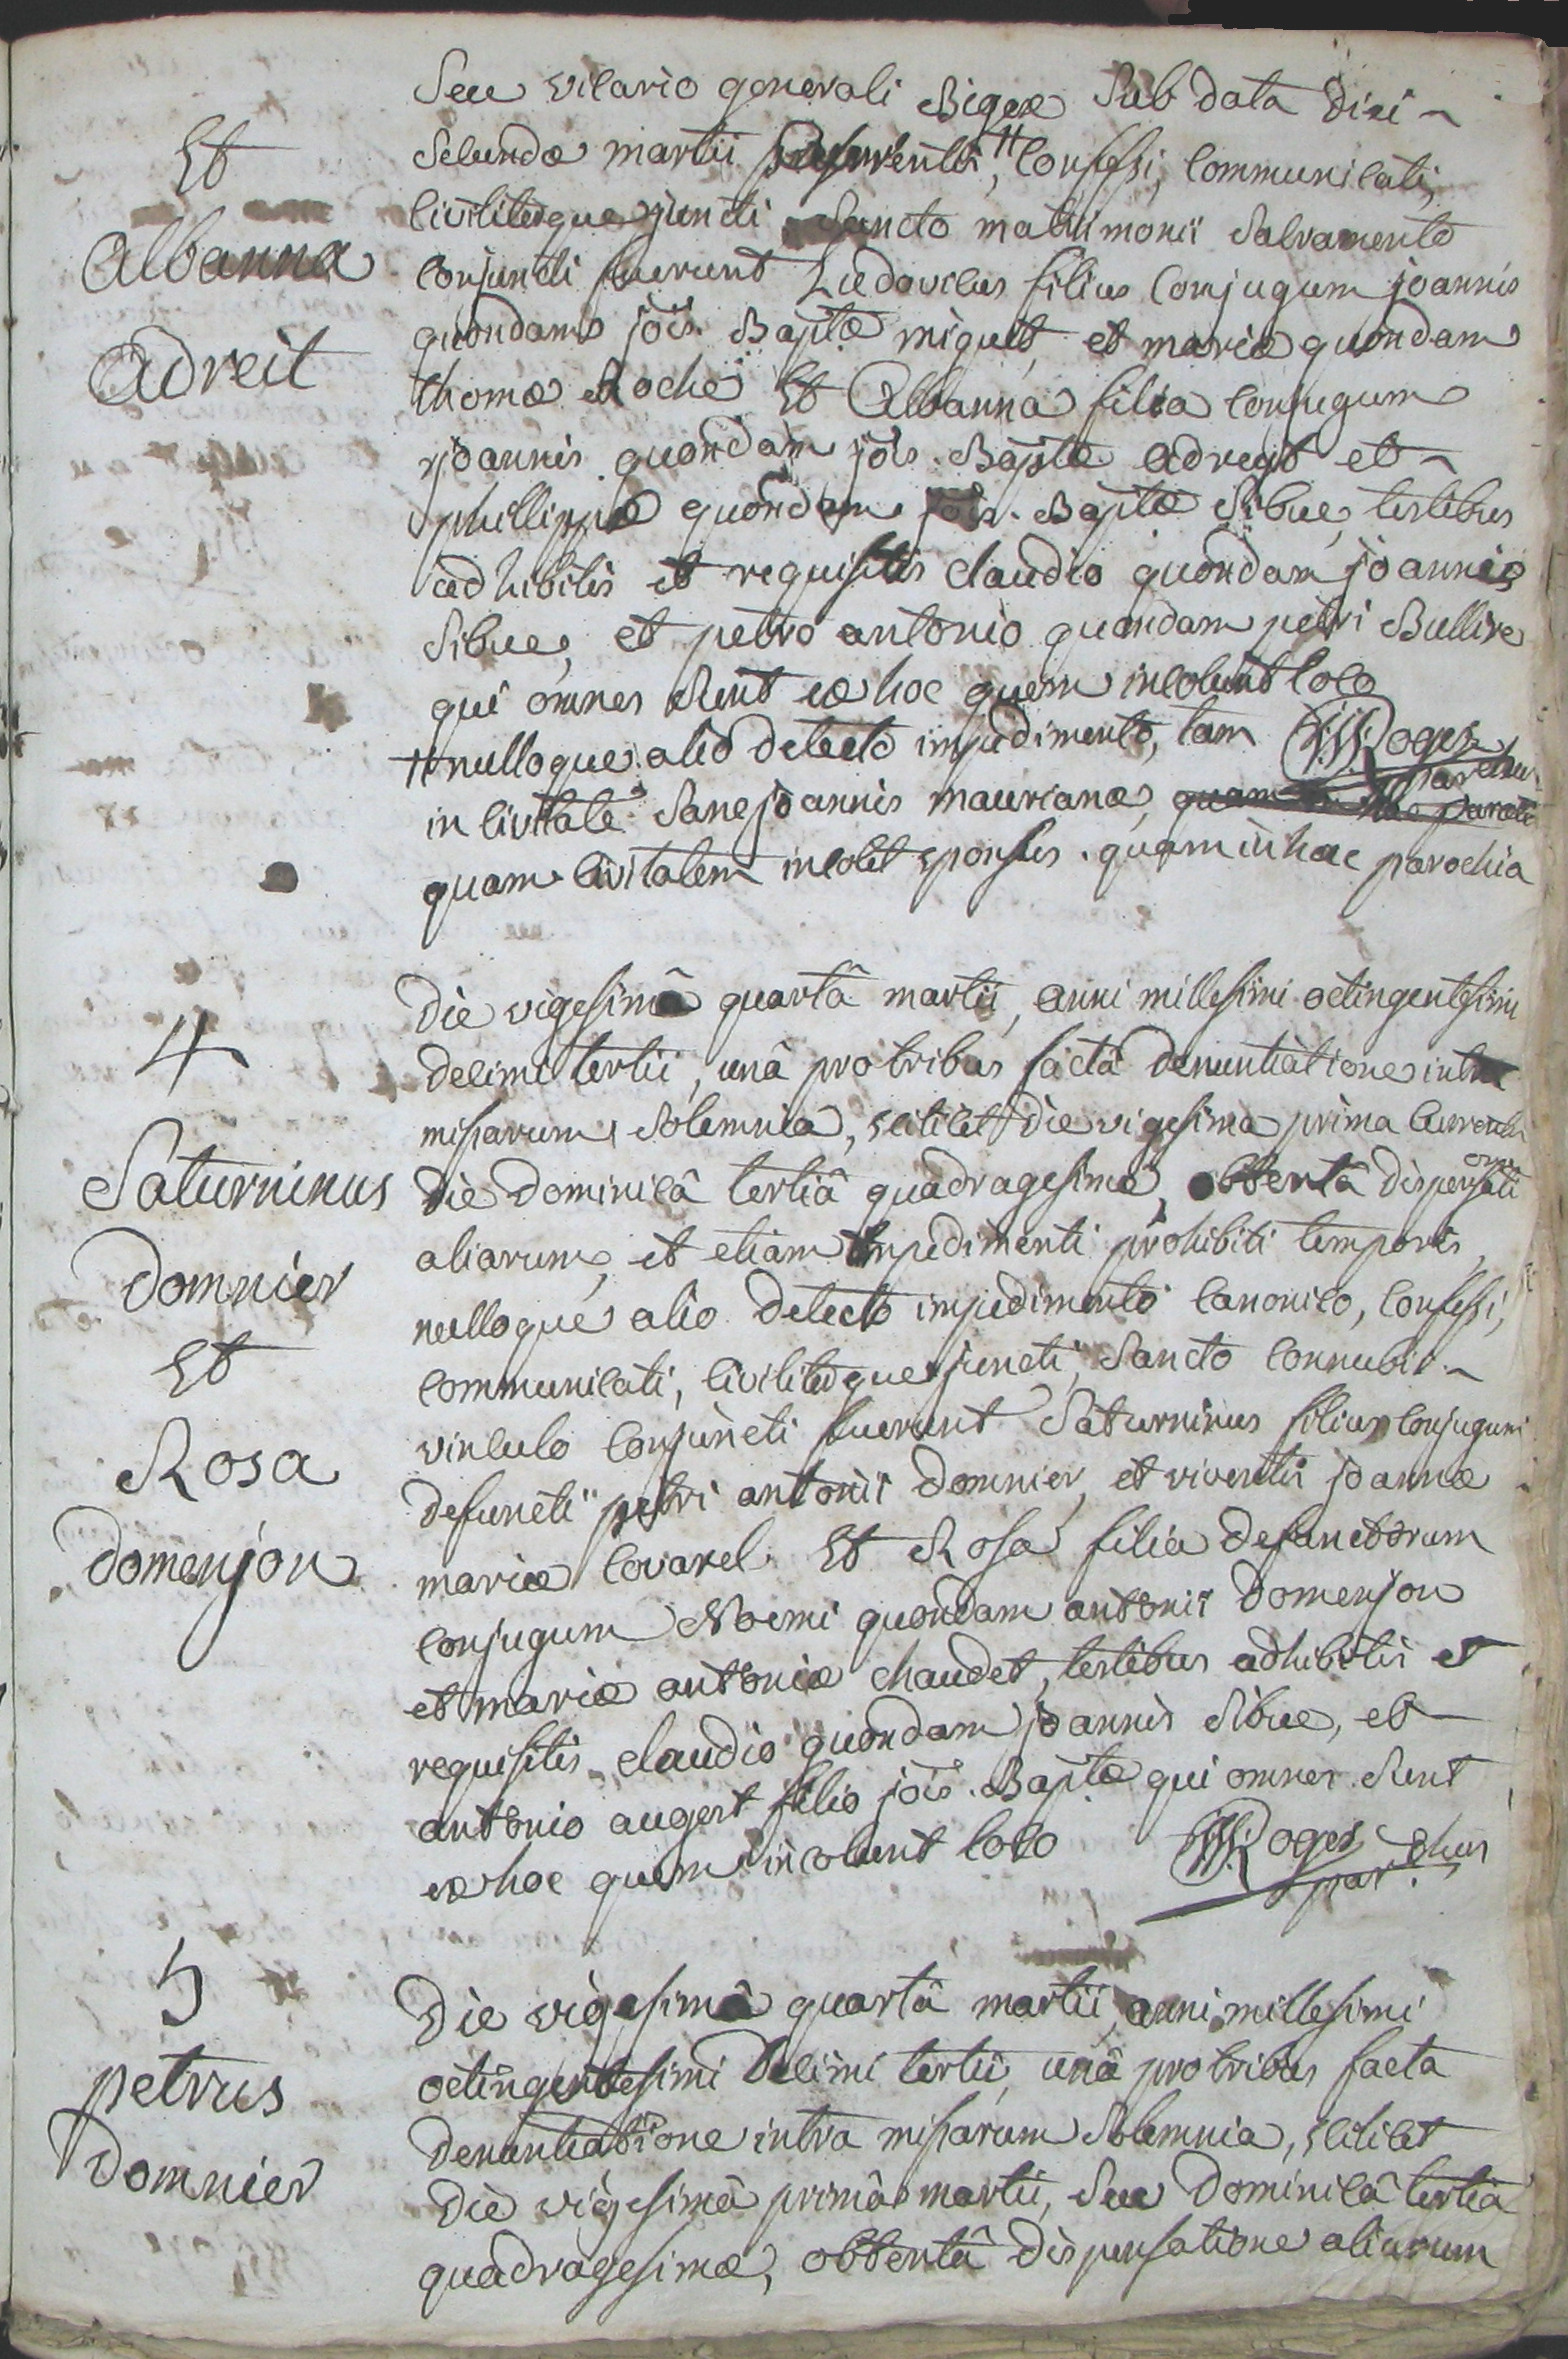 Seu vicario generali Bigex Sub data Diei
Et
Secundæ martii præsentis, ⧺ Confessi, Communicati,
Albanna
Civiliterque juncti Sancto matrimonii Sacramento
Conjuncti fuerunt Ludovicus filius Conjugum joannis
Adreit
quondam jois. Baptæ miquet, et mariæ quondam
thomæ Roche Et Albanna filia Conjugum
joannis quondam jois. Baptæ adreyt et
phillippæ quondam jois. Baptæ Sibue, testibus
adhibitis et requisitis claudio quondam joannis
Sibue, et petro antonio quondam petri Bullire
qui omnes Sunt ex hoc quem incolunt loco
⧺ nulloque alio detecto impedimento, tam Roger
parochus
in civitate Sancjoannis maurianæ, quam in hac paroch
quam Civitatem incolit sponsus. quam in hac parochia
4
Saturninus
Domnier
Et
Rosa
Domenjon
Die vigesimâ quartâ martii, anni millesimi octingentesimi
decimi tertii, unâ pro tribus factâ denuntiatione intra
missarum Solemnia, scilicet die vigesima prima Currentis
die Dominicâ tertiâ quadragesimæ, obtentâ dispensatione
aliarum, et etiam impedimenti prohibiti temporis,
nulloque alio detecto impedimento Canonico, Confessi,
Communicati, Civiliterque juncti, Sancto Connubii
vinculo Conjuncti fuerunt Saturninus filius Conjugum
defuncti petri antonii Domnier, et viventis joannæ
mariæ Covarel. Et Rosa filia defunctorum
Conjugum Noemi quondam antonii Domenjon
et mariæ antoniæ chaudet, testibus adhibitis et
requisitis claudio quondam joannis Sibue, et
antonio augert filio jois. Baptæ qui omnes Sunt
ex hoc quem incolunt loco Roger
par.chus
5
petrus
Domnier
Die vigesimâ quartâ martii, anni millesimi
octingentesimi Decimi tertii, unâ pro tribus facta
Denuntiatione intra missarum Solemnia, scilicet
Die vigesimâ primâ martii, Seu Dominicâ tertiâ
quadragesimæ, obtentâ Dispensatione aliarum